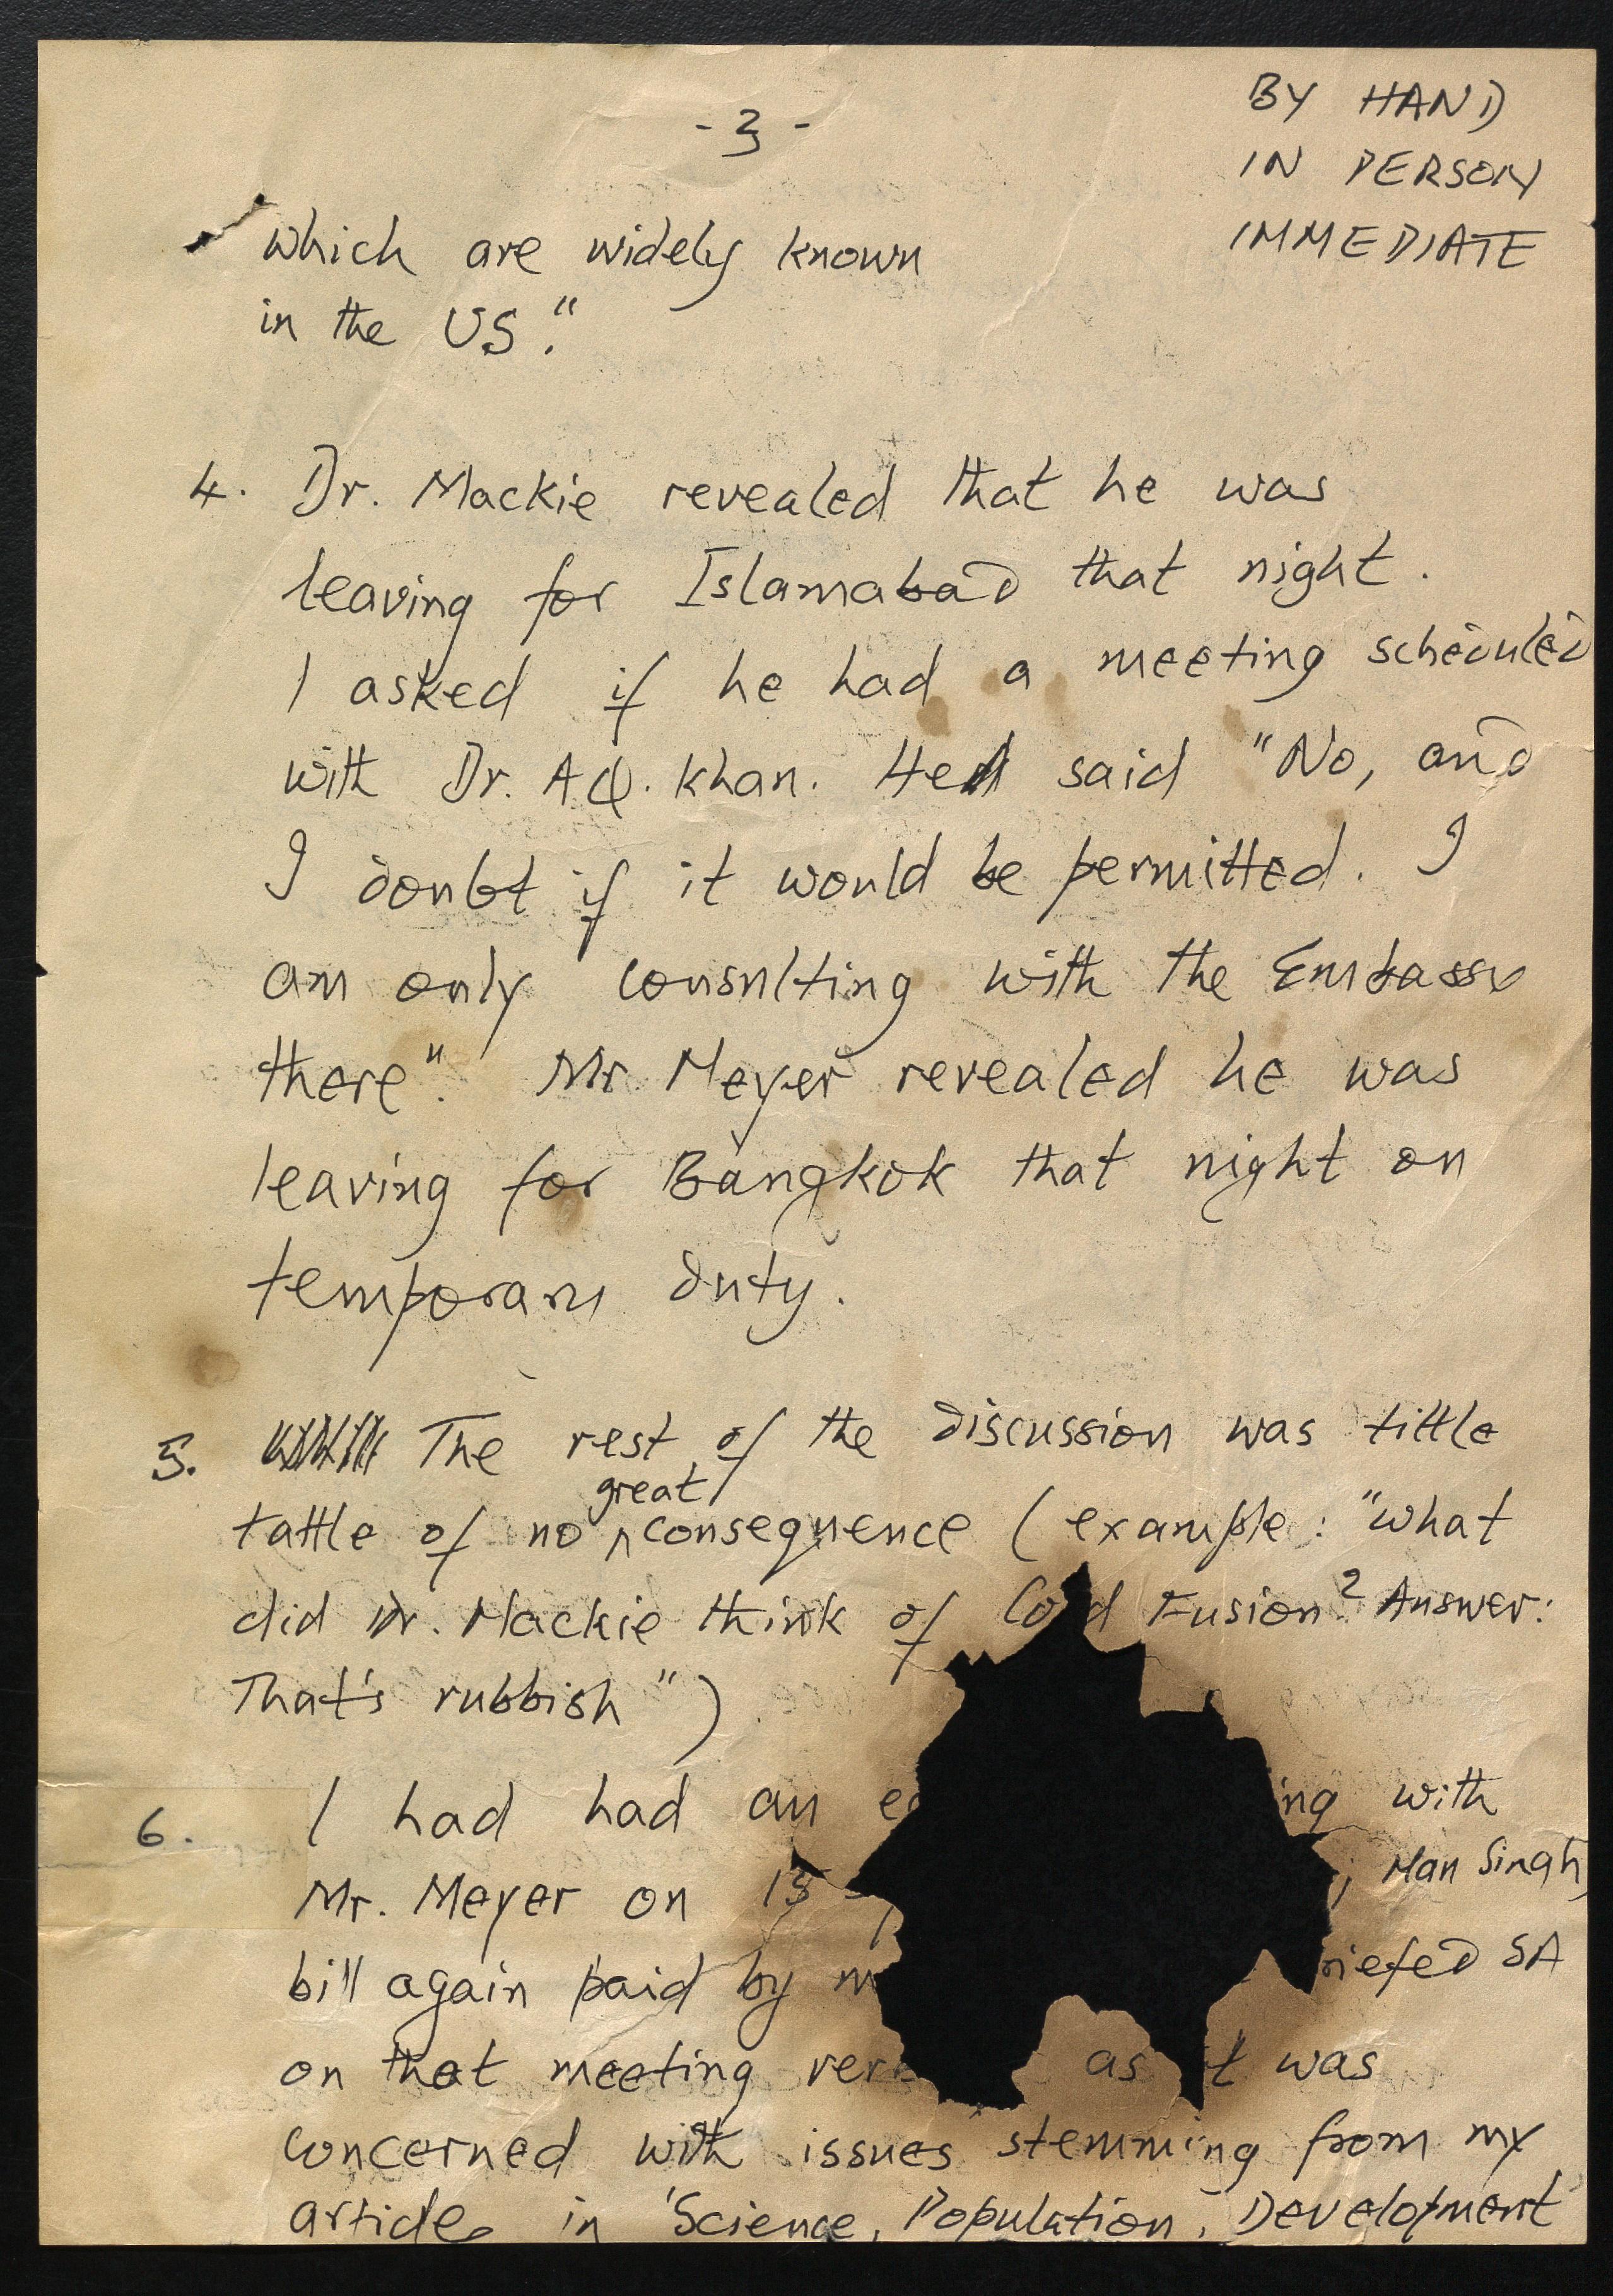 - 3 -
BY HAND
IN PERSON
IMMEDIATE
which are widely known
in the US."
4. Dr. Mackie revealed that he was
leaving for Islamabad that night.
I asked if he had a meeting scheduled
with Dr. A Q. Khan. He said "No, and
I doubt if it would be permitted. I
am only consulting with the Embassy
there". Mr Meyer revealed he was
leaving for Bangkok that night on
temporary duty.
5. The rest of the discussion was tittle
great
tattle of no consequence (example: "what
did Dr. Mackie think of Cold Fusion? Answer:
That's rubbish")
6. I had had an ing with
Mr. Meyer on 15 ; Man Singh,
bill again paid by riefed SA
on that meeting as it was
concerned with issues stemming from my
article in 'Science, Population, Development'